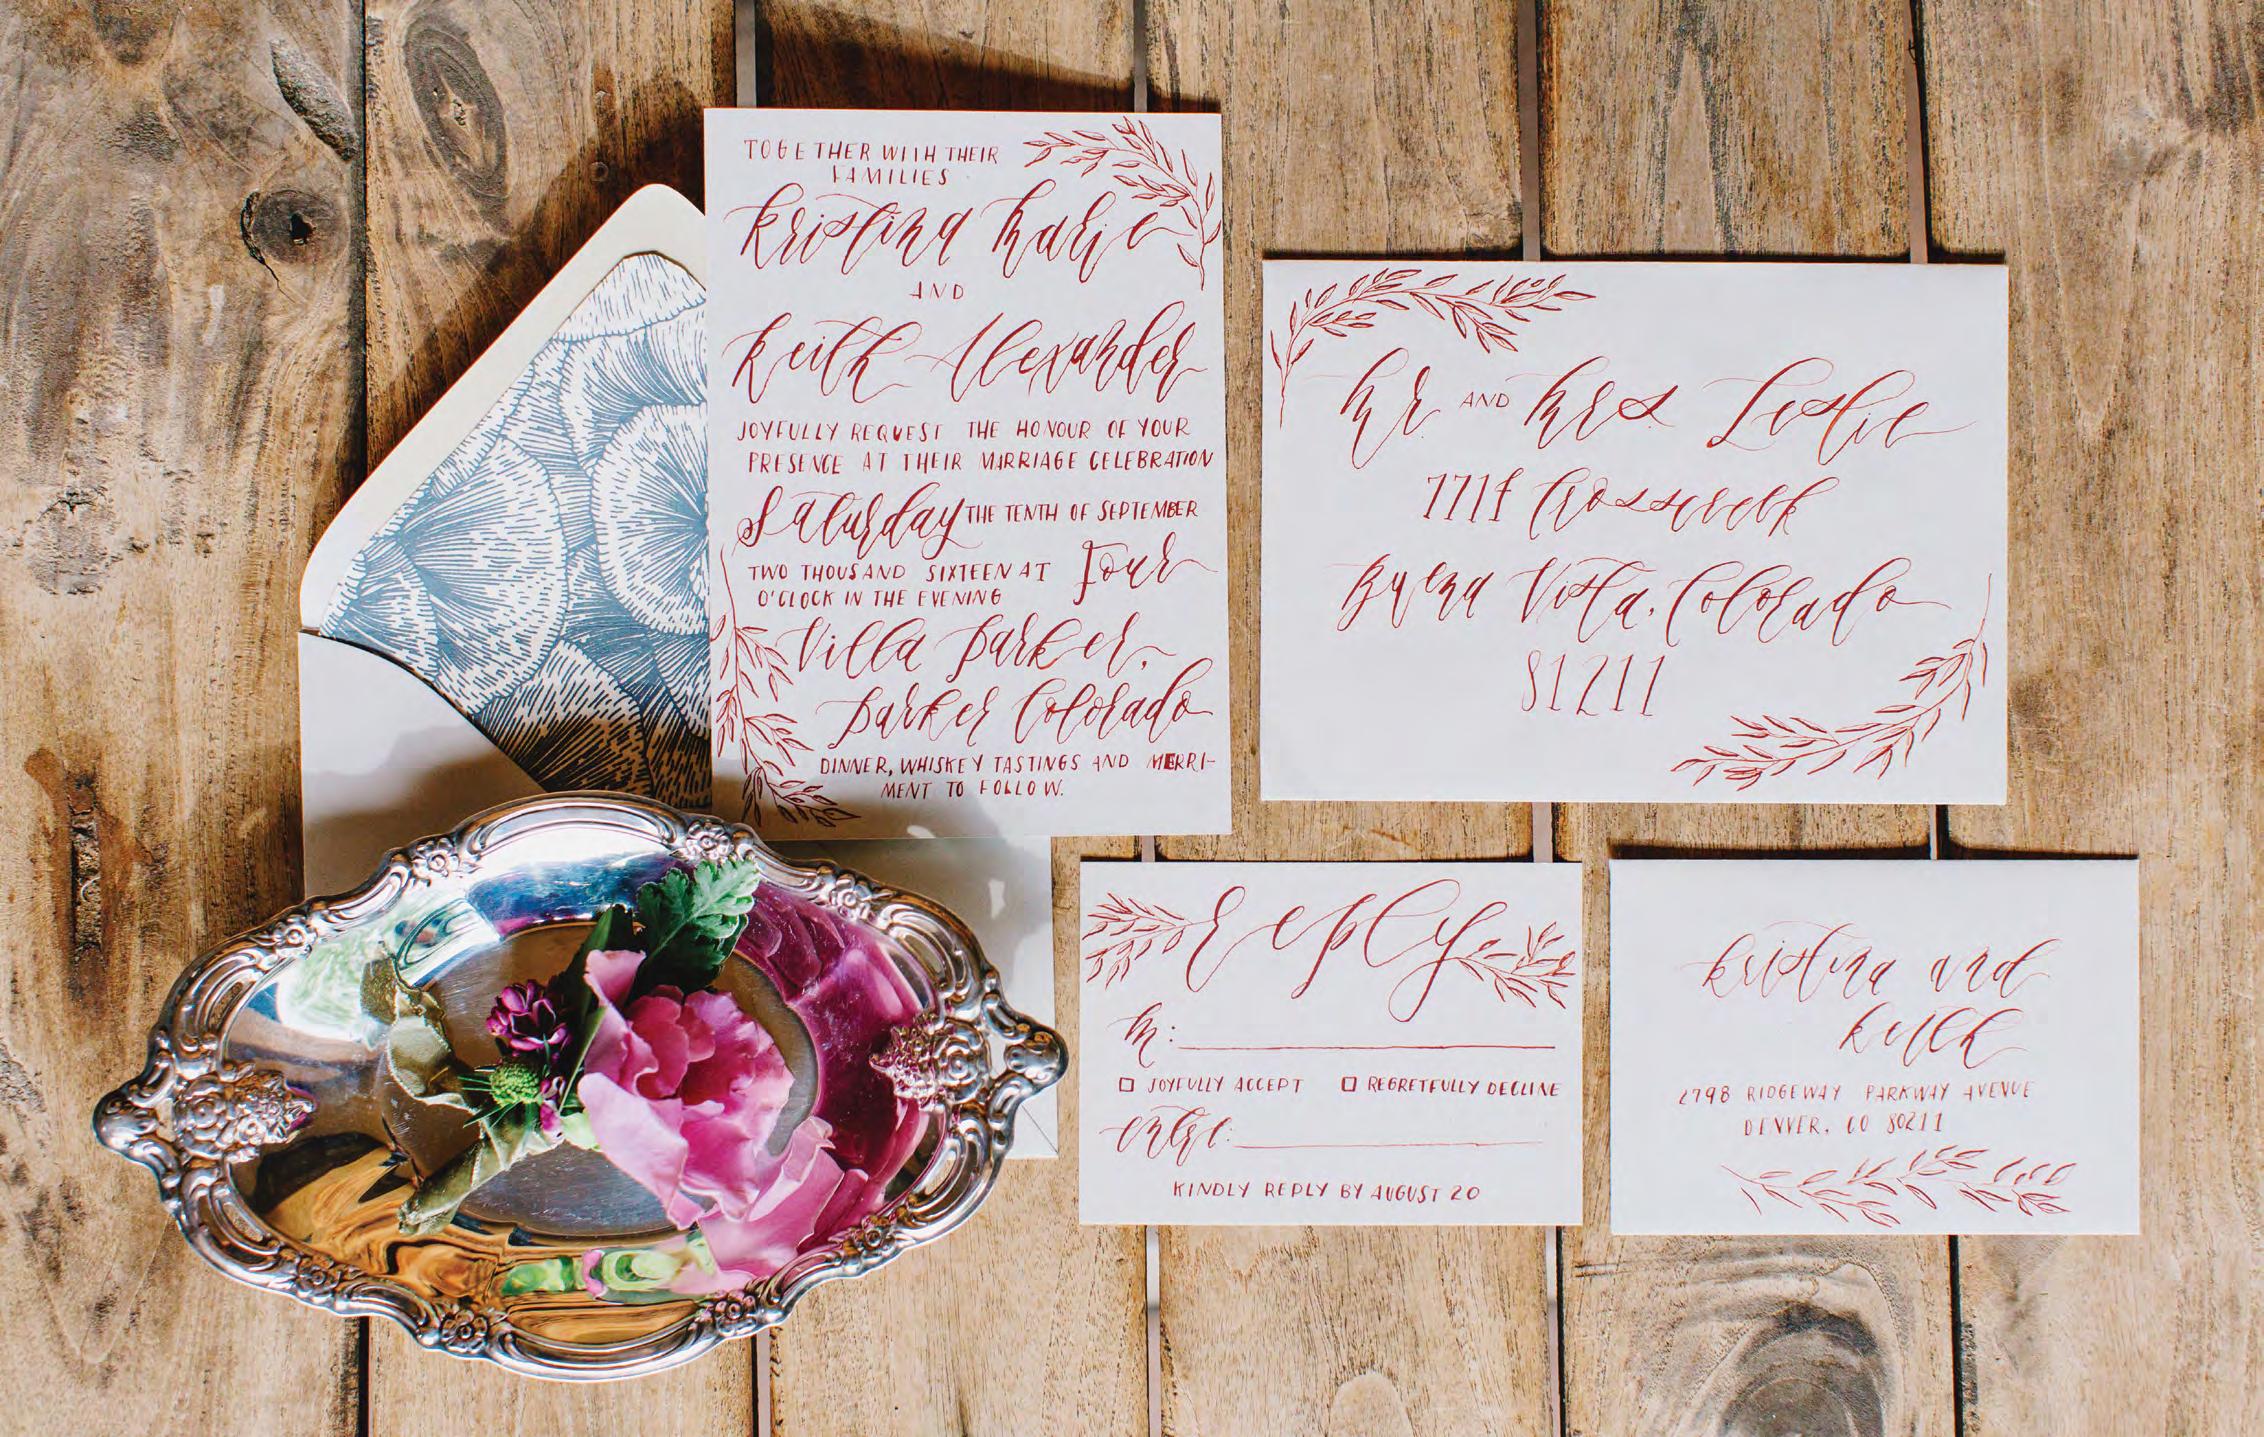 TOGETHER WITH THEIR
FAMILIES
Kristina Marie
AND
Keith Alexander
JOYFULLY REQUEST THE HONOUR OF YOUR
PRESENCE AT THEIR MARRIAGE CELEBRATION
Saturday THE TENTH OF SEPTEMBER
TWO THOUSAND SIXTEEN AT Four
O'CLOCK IN THE EVENING
Villa Parker,
Parker Colorado
DINNER, WHISKEY TASTINGS AND MERRI-
MENT TO FOLLOW.
Mr AND Mrs Leslie
Buena Vista, Colorado
81211
Reply
M:
JOYFULLY ACCEPT REGRETFULLY DECLINE
entre:
KINDLY REPLY BY AUGUST 20
Kristina and
Keith
2798 RIDGEWAY PARKWAY AVENUE
DENVER, CO 80211